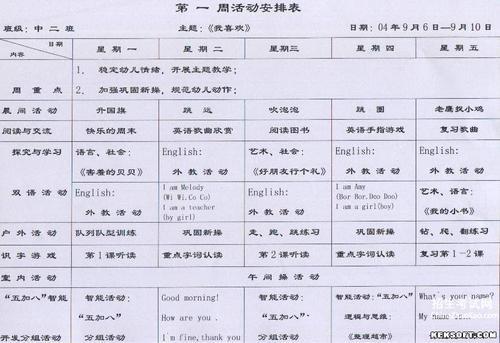 第 一 周活动安排表
班级：中 二 班 主题：《我喜欢》 日期：04 年 9 月 6 日—9 月 10 日
日期
内容
星 期 一 星 期 二 星 期 三 星 期 四 星 期 五
周 重 点
1． 稳定幼儿情绪，开展主题教学；
2． 加强巩固新操，规范幼儿动作；
晨 间 活 动 升国旗 跳 远 吹泡泡 跳 圈 老鹰捉小鸡
阅读与交流 快乐的周末 英语歌曲欣赏 阅读图书 英语手指游戏 复习歌曲
探究与学习 语言、社会： English: 艺术、社会： English: 语言：
《害羞的贝贝》 外 教 活 动 《好朋友行个礼》 外 教 活 动
双 语 活 动 English: I am Melody English: I am Amy 艺术、语言：
(Wi Wi.Co Co) (Bor Bor.Doo Doo)
外 教 活 动 I am a teacher 外 教 活 动 I am a girl(boy) 《我的小书》
(by girl)
户 外 活 动 队列队型训练 巩固新操 走、跑、跳练习 巩固新操 钻、爬、翻练习
识 字 游 戏 第 1 课听读 重点字词认读 第 2 课听读 重点字词认读 复习第 1-2 课
室 内 活 动 午 间 操 活 动
“五加八”智能 智能活动： Good morning! 智能活动： 智能活动：“五加八” What's your name?
“五加八” How are you . “五加八” 逻辑与思维： My name
开发分组活动 分组活动 I'm fine,thank you 分组活动 《整理超市》
招生考试网
KEKSORT.COM